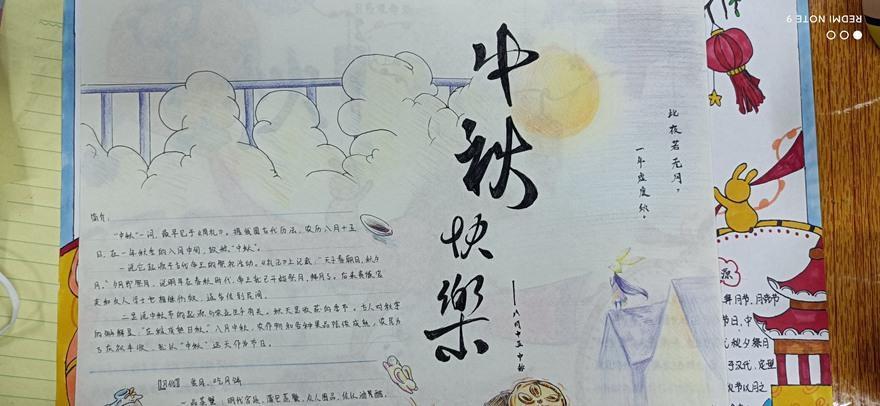 中秋快樂
八月十五中秋
此夜若无月，
一年虚度秋。
简介：
"中秋"一词，最早见于《周礼》。根据我国古代历法，农历八月十五
日，在一年秋季的八月中旬，故称"中秋"。
一说它起源于古代帝王的祭祀活动。《礼记》上记载："天子春朝日，秋夕
月"，夕月即祭月，说明早在春秋时代，帝王就已开始祭月、拜月了。后来贵族官
吏和文人学士也相继仿效，逐步传到民间。
二是说中秋节的起源与农业生产有关。秋天是收获的季节。古人对秋字
的解释是："庄稼成熟曰秋"。八月中秋，农作物和各种果品陆续成熟，农民为
了庆祝丰收，就以"中秋"这天作为节日。
【习俗】 赏月、吃月饼
REDMI NOTE 9
源
拜月节、月娘节
节日，中
秋夕祭月
于汉代，定型
秋节以月之